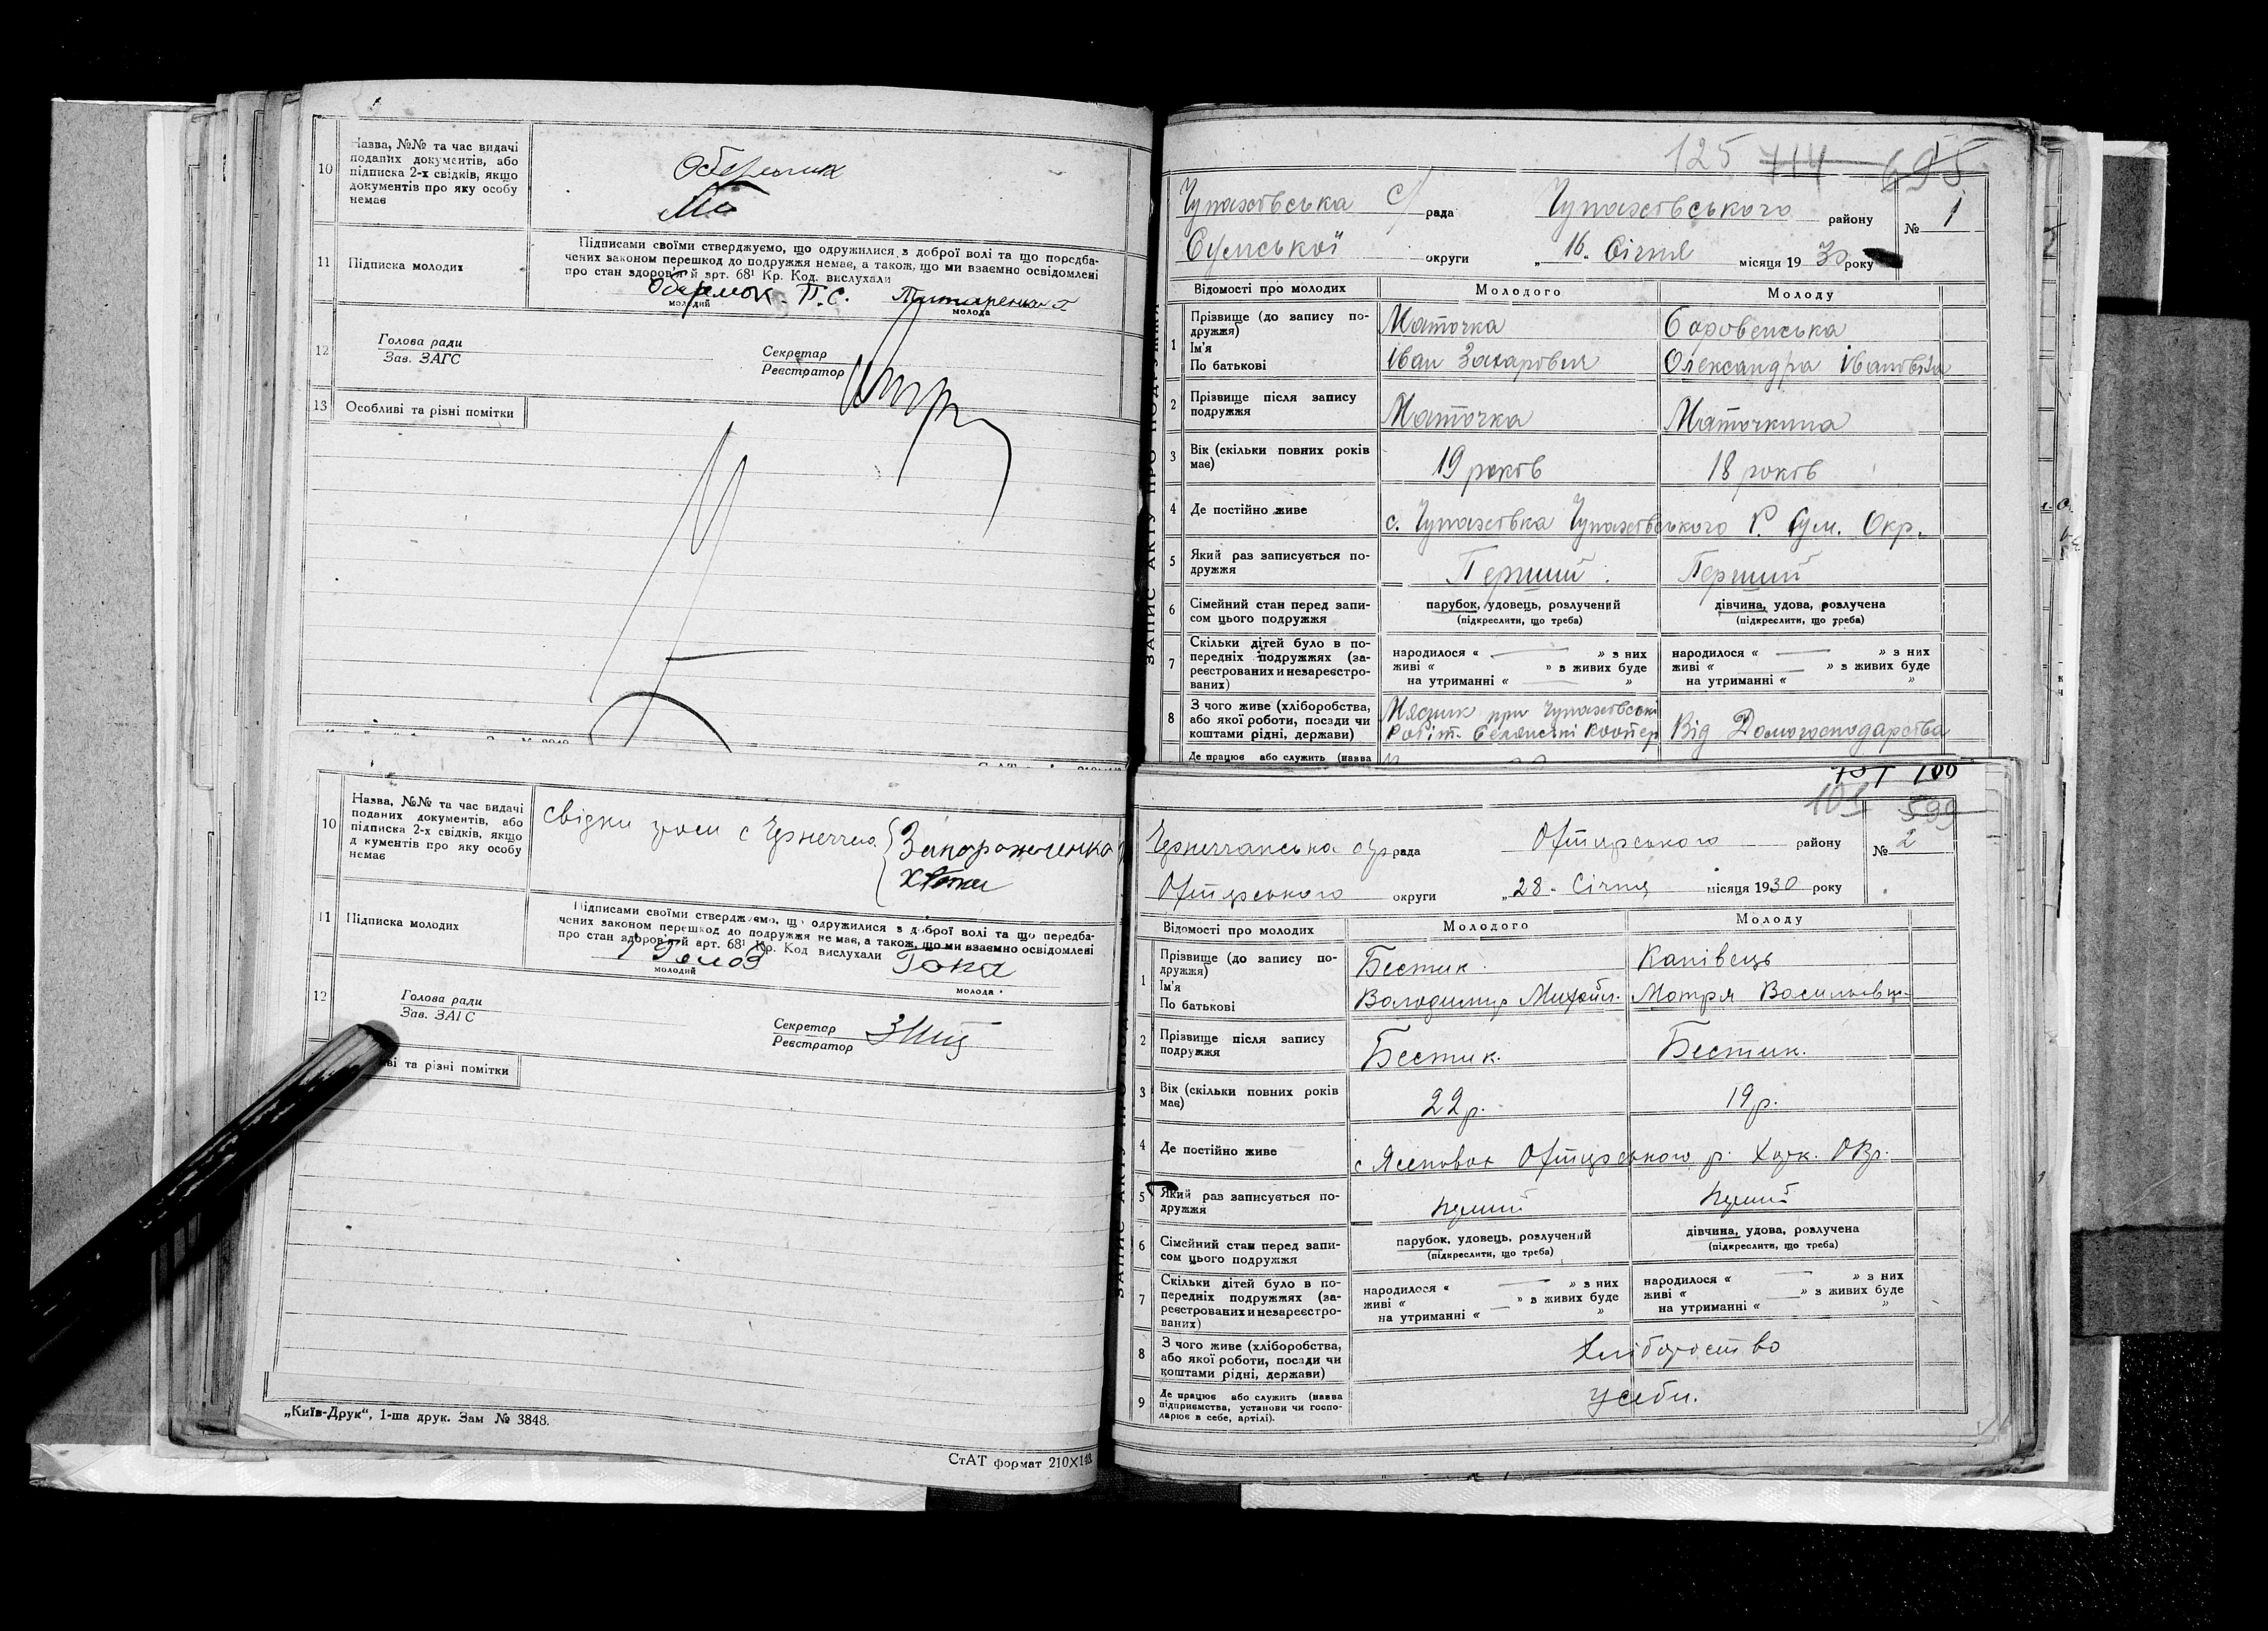 10
Назва, №№ та час видачі
поданих документів, або
підписка 2-х свідків, якщо
документів про яку особу
немає
11
Підписка молодих
Підписами своїми стверджуємо, що одружилися з доброї волі та що передба-
чених законом перешкод до подружжя немає, а також, що ми взаємно освідомлені
про стан здоров'я й арт. 68¹ Кр. Код. вислухали
Оберемок П.С.
молодий
молода
12
Голова ради
Зав. ЗАГС
Секретар
Реєстратор
13
Особливі та різні помітки
125 714 695
Чупахівська с/рада Чупахівського району № 1
Сумської округи „16. Січня місяця 1930 року
Відомості про молодих
Молодого
Молоду
1
Прізвище (до запису по-
дружжя)
Ім'я
По батькові
Маточка
Іван Захарович
Боровенська
Олександра Івановна
2
Прізвище після запису
подружжя
Маточка
Маточкина
3
Вік (скільки повних років
має)
19 років
18 років
4
Де постійно живе
с. Чупахівка Чупахівського Р. Сум. Окр.
5
Який раз записується по-
дружжя
Перший
Перший
6
Сімейний стан перед запи-
сом цього подружжя
парубок, удовець, розлучений
(підкреслити, що треба)
дівчина, удова, розлучена
(підкреслити, що треба)
7
Скільки дітей було в по-
передніх подружжях (за-
реєстрованих и незареєстро-
ваних)
народилося « » з них
живі « » з живих буде
на утриманні « »
народилося « » з них
живі « » з живих буде
на утриманні « »
8
З чого живе (хліборобства,
або якої роботи, посади чи
коштами рідні, держави)
при
Від Домогосподарства
Де працює або служить (назва
10
Назва, №№ та час видачі
поданих документів, або
підписка 2-х свідків, якщо
д кументів про яку особу
немає
свідки
11
Підписка молодих
Підписами своїми стверджуємо, що одружилися з доброї волі та що передба-
чених законом перешкод до подружжя не має, а також, що ми взаємно освідомлені
про стан здоров'я й арт. 68¹ Кр. Код вислухали
молодий
молода
12
Голова ради
Зав. ЗАГС
Секретар
Реєстратор
ві та різні помітки
„Київ-Друк“, 1-ша друк. Зам № 3848.
СтАТ формат 210×148
100
599
рада Охтирського району № 2
Охтирського округи „28. Січня місяця 1930 року
Відомості про молодих
Молодого
Молоду
1
Прізвище (до запису по-
дружжя)
Ім'я
По батькові
Бестик
Володимир Михайл.
Канівець
Мотря Васильевн.
2
Прізвище після запису
подружжя
Бестик.
Бестик.
3
Вік (скільки повних років
має)
22 р.
19 р.
4
Де постійно живе
с Охтирського р. Харк. Окр.
5
Який раз записується по-
дружжя
перший
перший
6
Сімейний стан перед запи-
сом цього подружжя
парубок, удовець, розлучений
(підкреслити, що треба)
дівчина, удова, розлучена
(підкреслити, що треба)
7
Скільки дітей було в по-
передніх подружжях (за-
реєстрованих и незареєстро-
ваних)
народилося « » з них
живі « » з живих буде
на утриманні « »
народилося « » з них
живі « » з живих буде
на утриманні « »
8
З чого живе (хліборобства,
або якої роботи, посади чи
коштами рідні, держави)
9
Де працює або служить (назва
підприємства, установи чи госпо-
дарює в себе, артілі).
у себи.